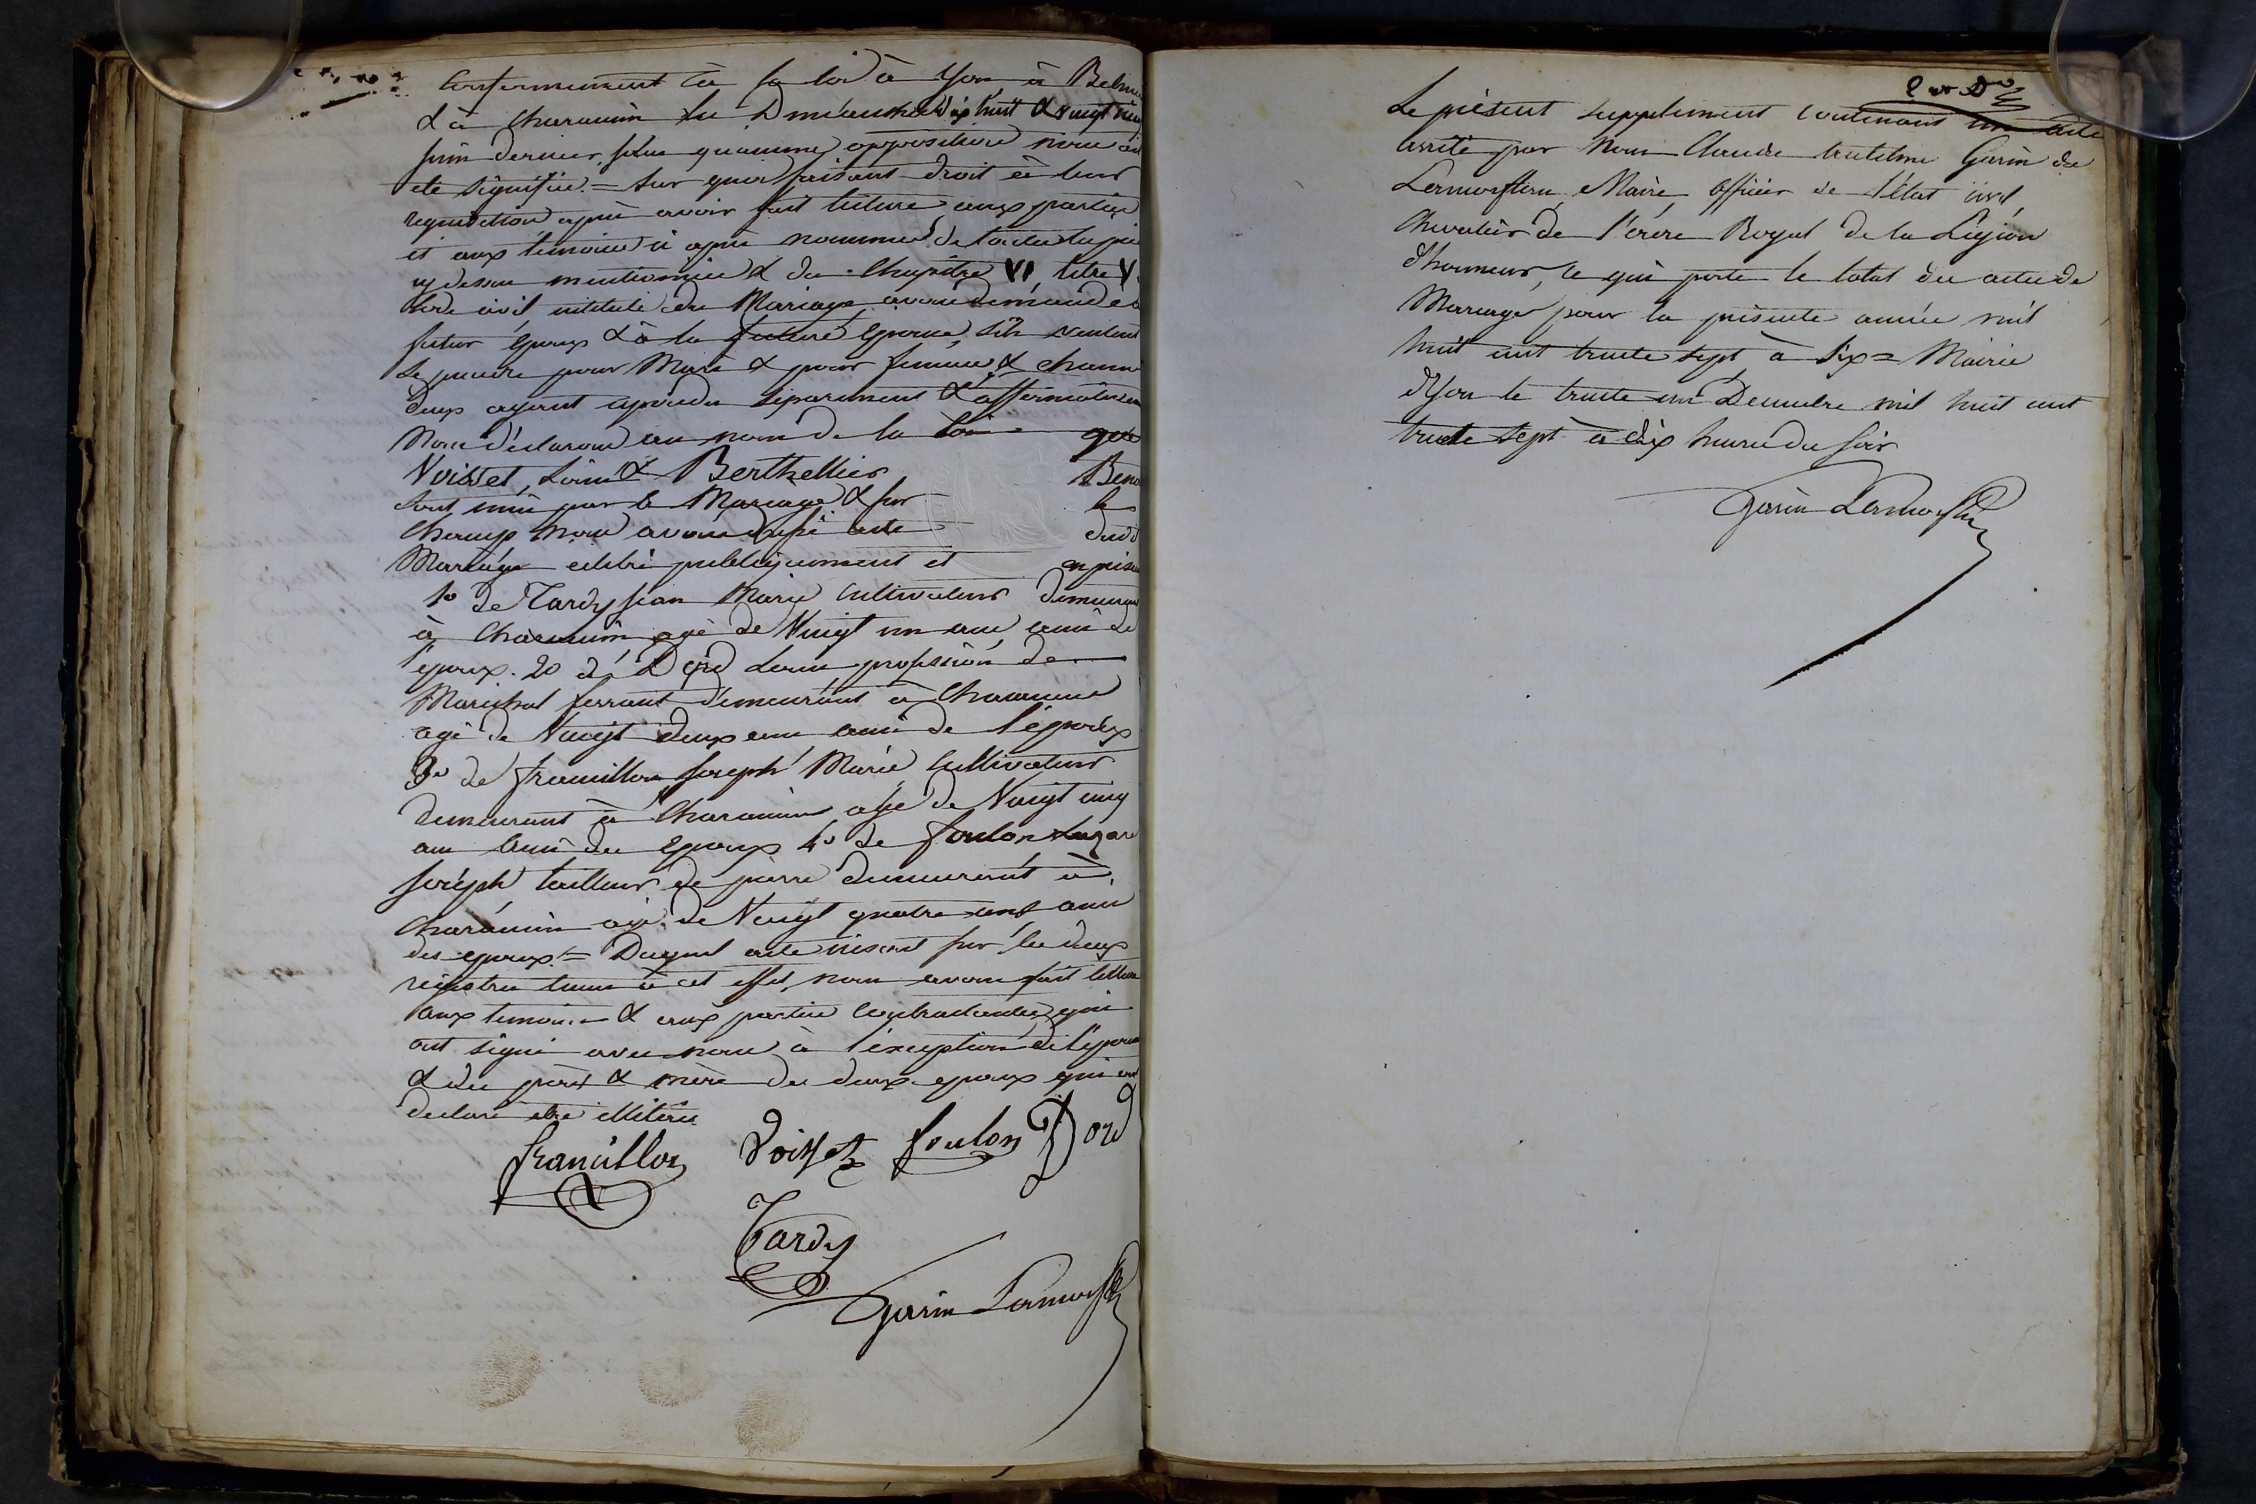 Conformement à la loi à Yon à Belm
& à Charancin les Dimanches dix huit & vingt cinq
juin dernier, sans quaucune opposition nous ait
ete signifiée = Sur quoi faisant droit à leur
requisition après avoir fait lecture aux parties
et aux témoins ci après nommés de toutes les pie
cy dessus mentionnées & du Chapitre VI, titre V
Code civil intitulé du Mariage avons demandé
futur époux & à la future épouse s'ils veulent
se prendre pour Mari & pour femme & chacun
deux ayant repondu séparément & affirmativem
Nous déclarons au nom de la Loi que
Voisset, Louis & Berthellier Beno
sont unis par le Mariage & sur le
Champ nous avons dressé acte dudi
Mariage célébré publiquement et en prése
1o de Tardy jean Marie Cultivateur demeurant
à Charancin agé de Vingt un ans ami de
l'époux. 2o de Dord Louis profession de
Maréchal ferrant demeurant à Charancin
agé de Vingt deux ans ami de l'époux
3o de francillon Joseph Marie Cultivateur
demeurant à Charancin agé de Vingt cinq
ans ami des Epoux 4o de foulon Lazare
Joseph tailleur de pierre demeurant à
Charancin agé de Vingt quatre ans ami
des epoux = Duquel acte inscrit sur les deux
régistres tenus à cet effet, nous avons fait lecture
aux temoins & aux parties contractantes, qui
ont signé avec nous à l'éxception de l'épouse
& des pères & mère des deux epoux qui ont
declaré etre illitérés
francillon Voisset foulon Dord
Tardy
Garin Lamorflan
Le présent supplément contenant un acte
arrêté par Nous Claude Garin de
Lamorflan, Maire, Officier de l'état civil,
Chevalier de l'ordre Royal de la Légion
d'honneur, ce qui porte le total des actes de
Mariage pour la présente année mil
huit cent trente sept à Six = Mairie
d'Yon le trente un Décembre mil huit cent
trente sept à dix heures du soir
Garin Lamorflan